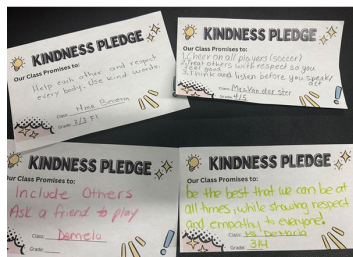 KINDNESS PLEDGE
Our Class Promises to:
Help each other and respect
every body. Use kind words.
Class: Mme
Grade: 2/3 FI
KINDNESS PLEDGE
Our Class Promises to:
1. Cheer on all players (soccer)
2. Treat others with respect so you
feel good
3. Think and listen before you speak/
act
Class:
Grade: 4/5
KINDNESS PLEDGE
Our Class Promises to:
Include Others
Ask a friend to play
Class:
Grade:
KINDNESS PLEDGE
Our Class Promises to:
be the best that we can be at
all times, while showing respect
and empathy to everyone!
Class: Ms
Grade: 3/4